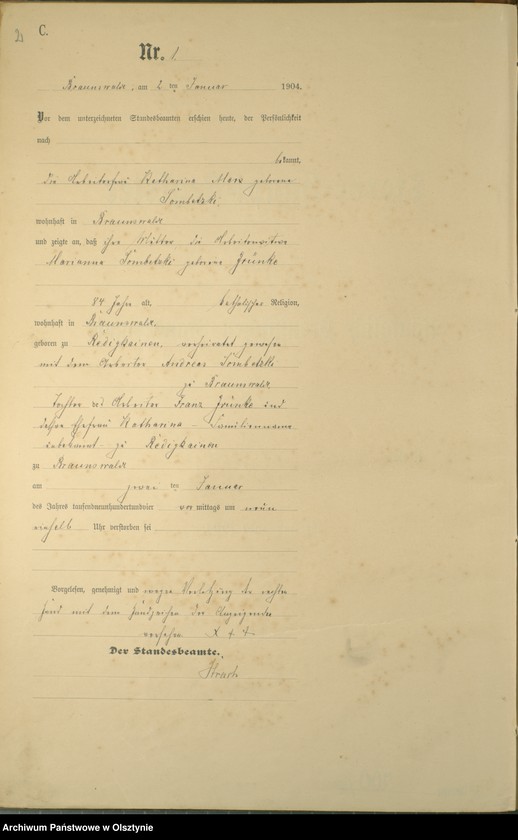 2
C.
Nr. 1
Braunswalde, am 2 ten Januar 1904.
Vor dem unterzeichneten Standesbeamten erschien heute, der Persönlichkeit
nach
bekannt,
die Arbeiterfrau Katharina geborene
wohnhaft in Braunswalde
und zeigte an, daß ihre Mutter die Arbeiterwitwe
Marianna geborene Grünke
84 Jahr alt, katholischer Religion,
wohnhaft in Braunswalde,
geboren zu Redigkainen, verheiratet gewesen
mit dem Arbeiter Andreas
zu Braunswalde
Tochter des Arbeiter Franz Grünke und
dessen Ehefrau Katharina - Familienname
unbekannt - zu Redigkainen
zu Braunswalde
am zwei ten Januar
des Jahres tausendneunhundertundvier vor mittags um neun
einhalb Uhr verstorben sei
Vorgelesen, genehmigt und wegen Verletzung der rechten
Hand mit dem Handzeichen der Anzeigenden
versehen X + +
Der Standesbeamte.
Archiwum Państwowe w Olsztynie